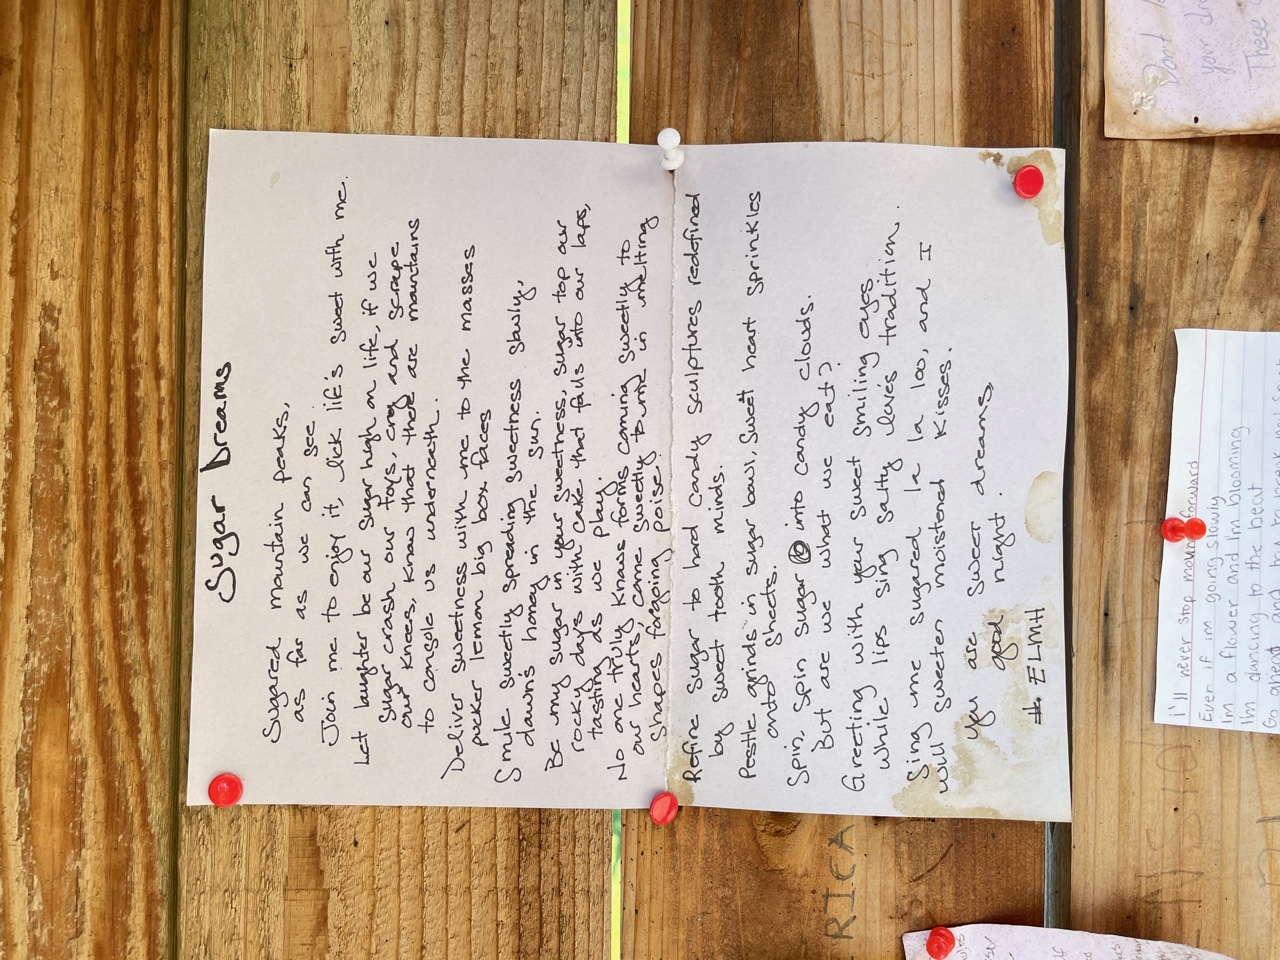 Sugar Dreams
Sugared mountain peaks,
as far as we can see.
Join me to enjoy it, lick life's sweet with me.
Let laughter be our sugar high on life, if we
sugar crash our toys, cry and scrape
our knees, know that there are mountains
to console us underneath.
Deliver sweetness with me to the masses
pucker lemon big box faces
Smile sweetly spreading sweetness slowly,
dawn's honey in the sun.
Be my sugar in your sweetness, sugar top our
rocky days with cake that falls into our laps,
tasting as we play.
No one truly knows forms coming sweetly to
our hearts, come sweetly to me in melting
shapes forgoing poise.
Refine sugar to hard candy sculptures redefined
by sweet tooth minds.
Pestle grinds in sugar bowl, sweet heart sprinkles
onto sheets.
Spin, spin sugar into candy clouds.
But are we what we eat?
Greeting with your sweet smiling eyes
while lips sing salty love's tradition.
Sing me sugared la la loo, and I
will sweeter moistened kisses.
you are sweet dreams,
good night.
# ELMH
Don't
you
These
I'll never stop moving forward
Even if im going slowly
Im a flower and I'm blooming
I'm dancing to the beat
Go ahead and try to break me
RICA